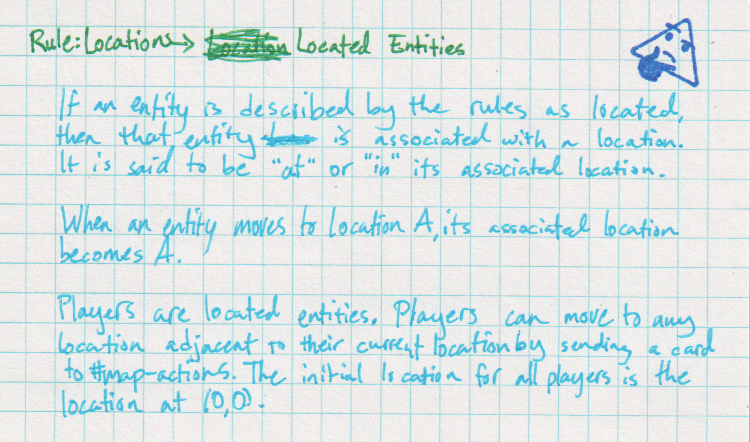 Rule: Locations → Located Entities
If an entity is described by the rules as located,
then that entity is associated with a location.
It is said to be "at" or "in" its associated location.
When an entity moves to location A, its associated location
becomes A.
Players are located entities. Players can move to any
location adjacent to their current location by sending a card
to #map-actions. The initial location for all players is the
location at (0,0).